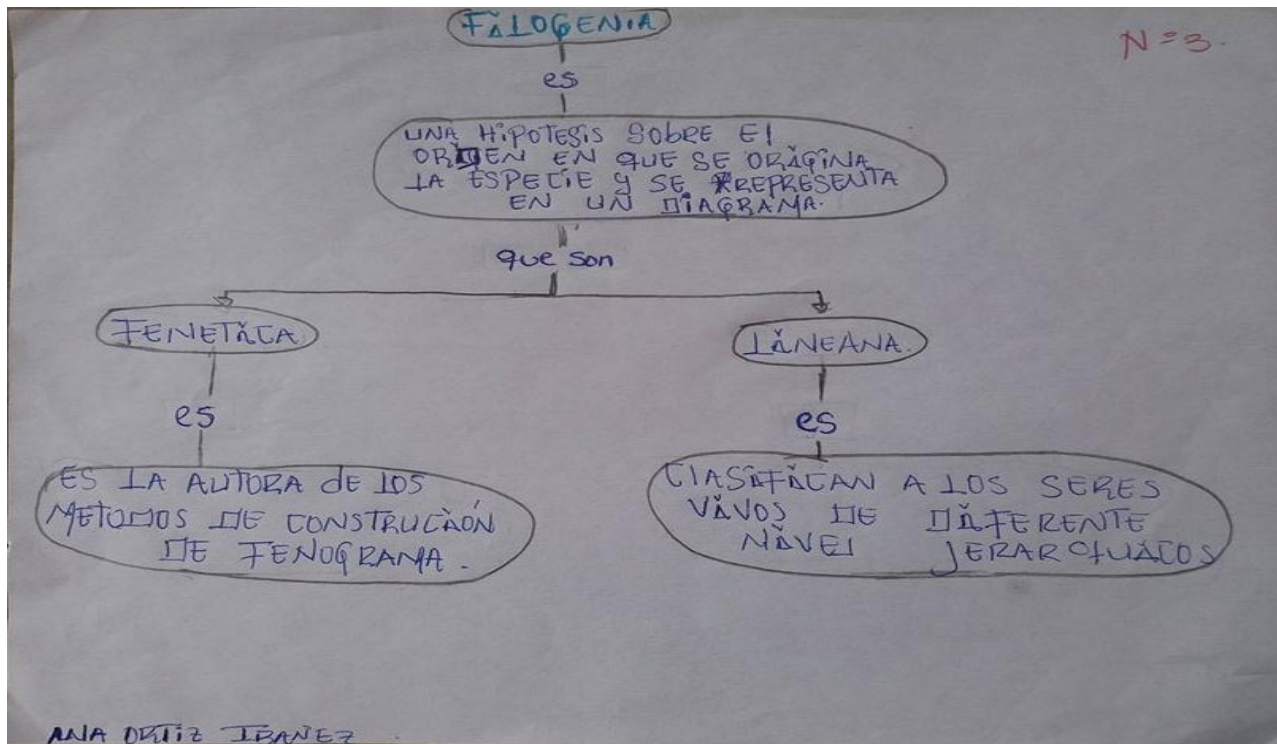 FILOGENIA
N=3.
es
UNA HiPOTESiS SObRE El
ORDEN EN QUE SE ORIGINA
LA ESPECIE Y SE REPRESENTA
EN UN DIAGRAMA.
que son
FENETICA
LINEANA.
es
es
ES LA AUTORA dE LOS
METODOS DE CONSTRUCIÓN
DE FENOGRAMA.
ClASIFICAN A LOS SERES
VIVOS DE DIFERENTE
NIVEl JERARQUICOS
ANA ORTIZ IBANEZ